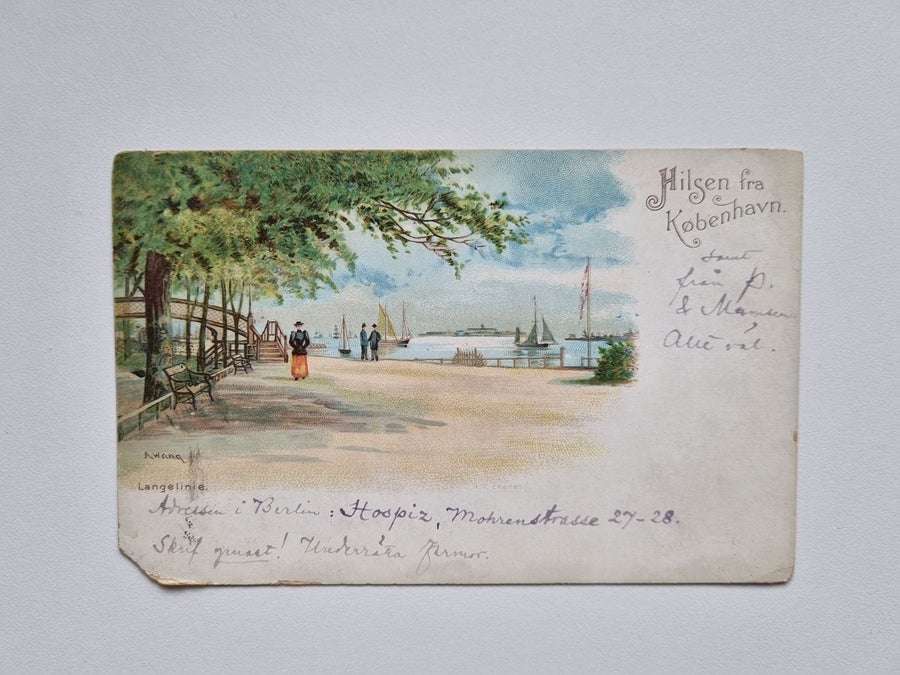 Hilsen fra
København.
samt
från P.
& Mamsen
Allt väl.
A Wang
Langelinie.
Adressen i Berlin: Hospiz, Mohrenstrasse 27-28.
Skrif genast! Underrätta Farmor.